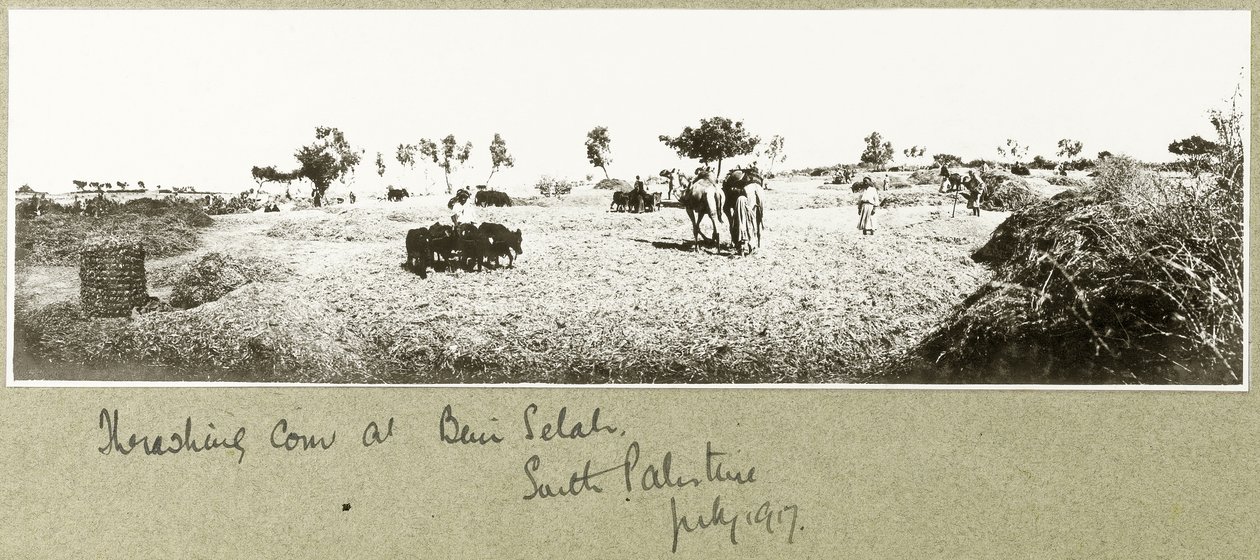 Thrashing Corn at Beni Selah.
South Palestine
July 1917.